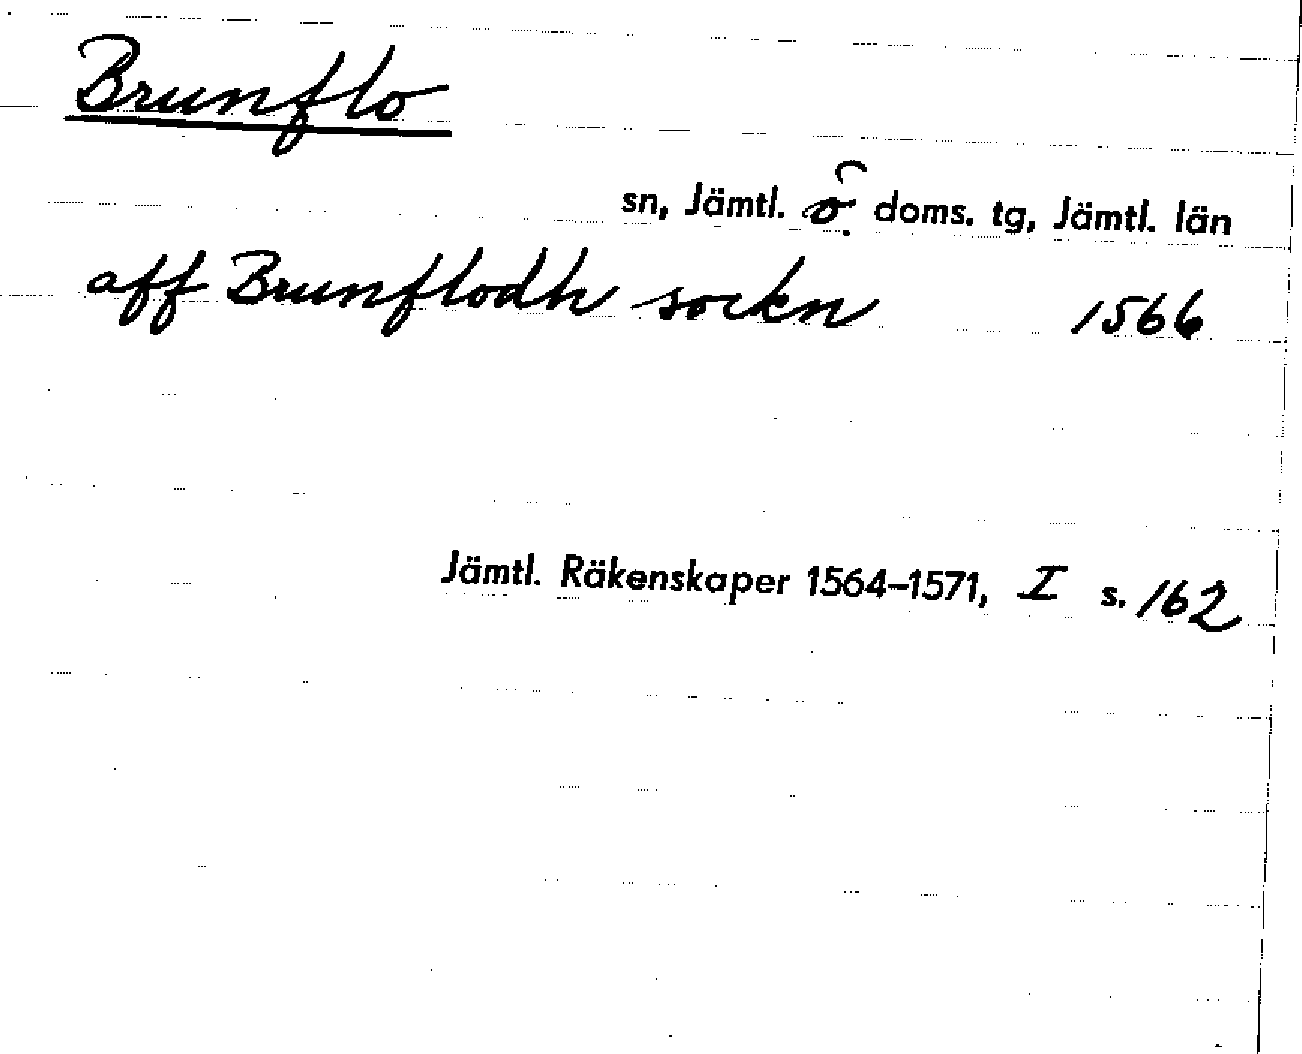 Brunflo
sn, Jämtl. ö. doms. tg, Jämtl. län
aff Brunflodh sockn 1566
Jämtl. Räkenskaper 1564–1571, I s. 162